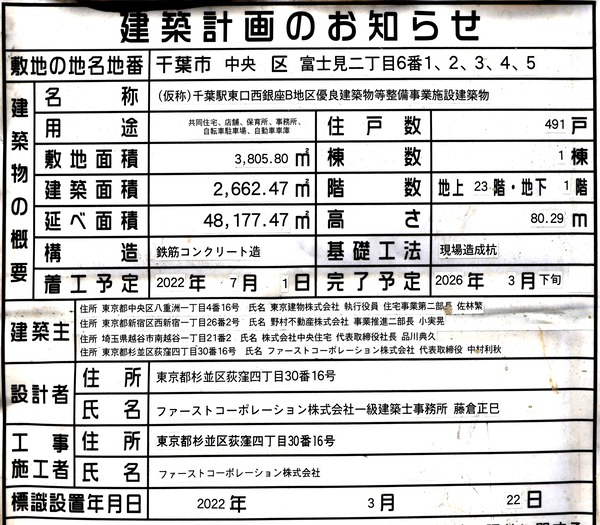 建築計画のお知らせ
敷地の地名地番 千葉市 中央 区 富士見二丁目6番1、2、3、4、5
建築物の概要
名称 (仮称)千葉駅東口西銀座B地区優良建築物等整備事業施設建築物
用途 共同住宅、店舗、保育所、事務所、自転車駐車場、自動車車庫 住戸数 491 戸
敷地面積 3,805.80 ㎡ 棟数 1 棟
建築面積 2,662.47 ㎡ 階数 地上 23 階・地下 1 階
延べ面積 48,177.47 ㎡ 高さ 80.29 m
構造 鉄筋コンクリート造 基礎工法 現場造成杭
着工予定 2022 年 7 月 1 日 完了予定 2026 年 3 月 下旬
建築主
住所 東京都中央区八重洲一丁目4番16号 氏名 東京建物株式会社 執行役員 住宅事業第二部長 佐林繁
住所 東京都新宿区西新宿一丁目26番2号 氏名 野村不動産株式会社 事業推進二部長 小実晃
住所 埼玉県越谷市南越谷一丁目21番2 氏名 株式会社中央住宅 代表取締役社長 品川典久
住所 東京都杉並区荻窪四丁目30番16号 氏名 ファーストコーポレーション株式会社 代表取締役 中村利秋
設計者 住所 東京都杉並区荻窪四丁目30番16号
氏名 ファーストコーポレーション株式会社一級建築士事務所 藤倉正巳
工事施工者 住所 東京都杉並区荻窪四丁目30番16号
氏名 ファーストコーポレーション株式会社
標識設置年月日 2022 年 3 月 22 日